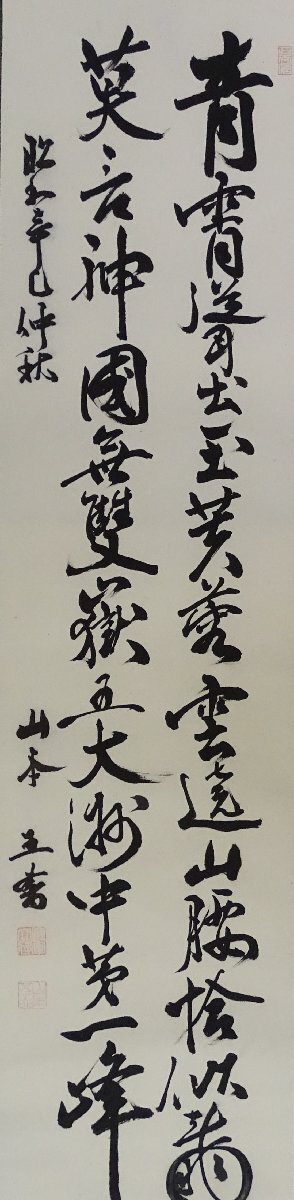 青霄聳出玉芙蓉雲遶山腰恰似龍
莫言神國無雙嶽五大洲中第一峰
昭和辛巳仲秋
山本 王書